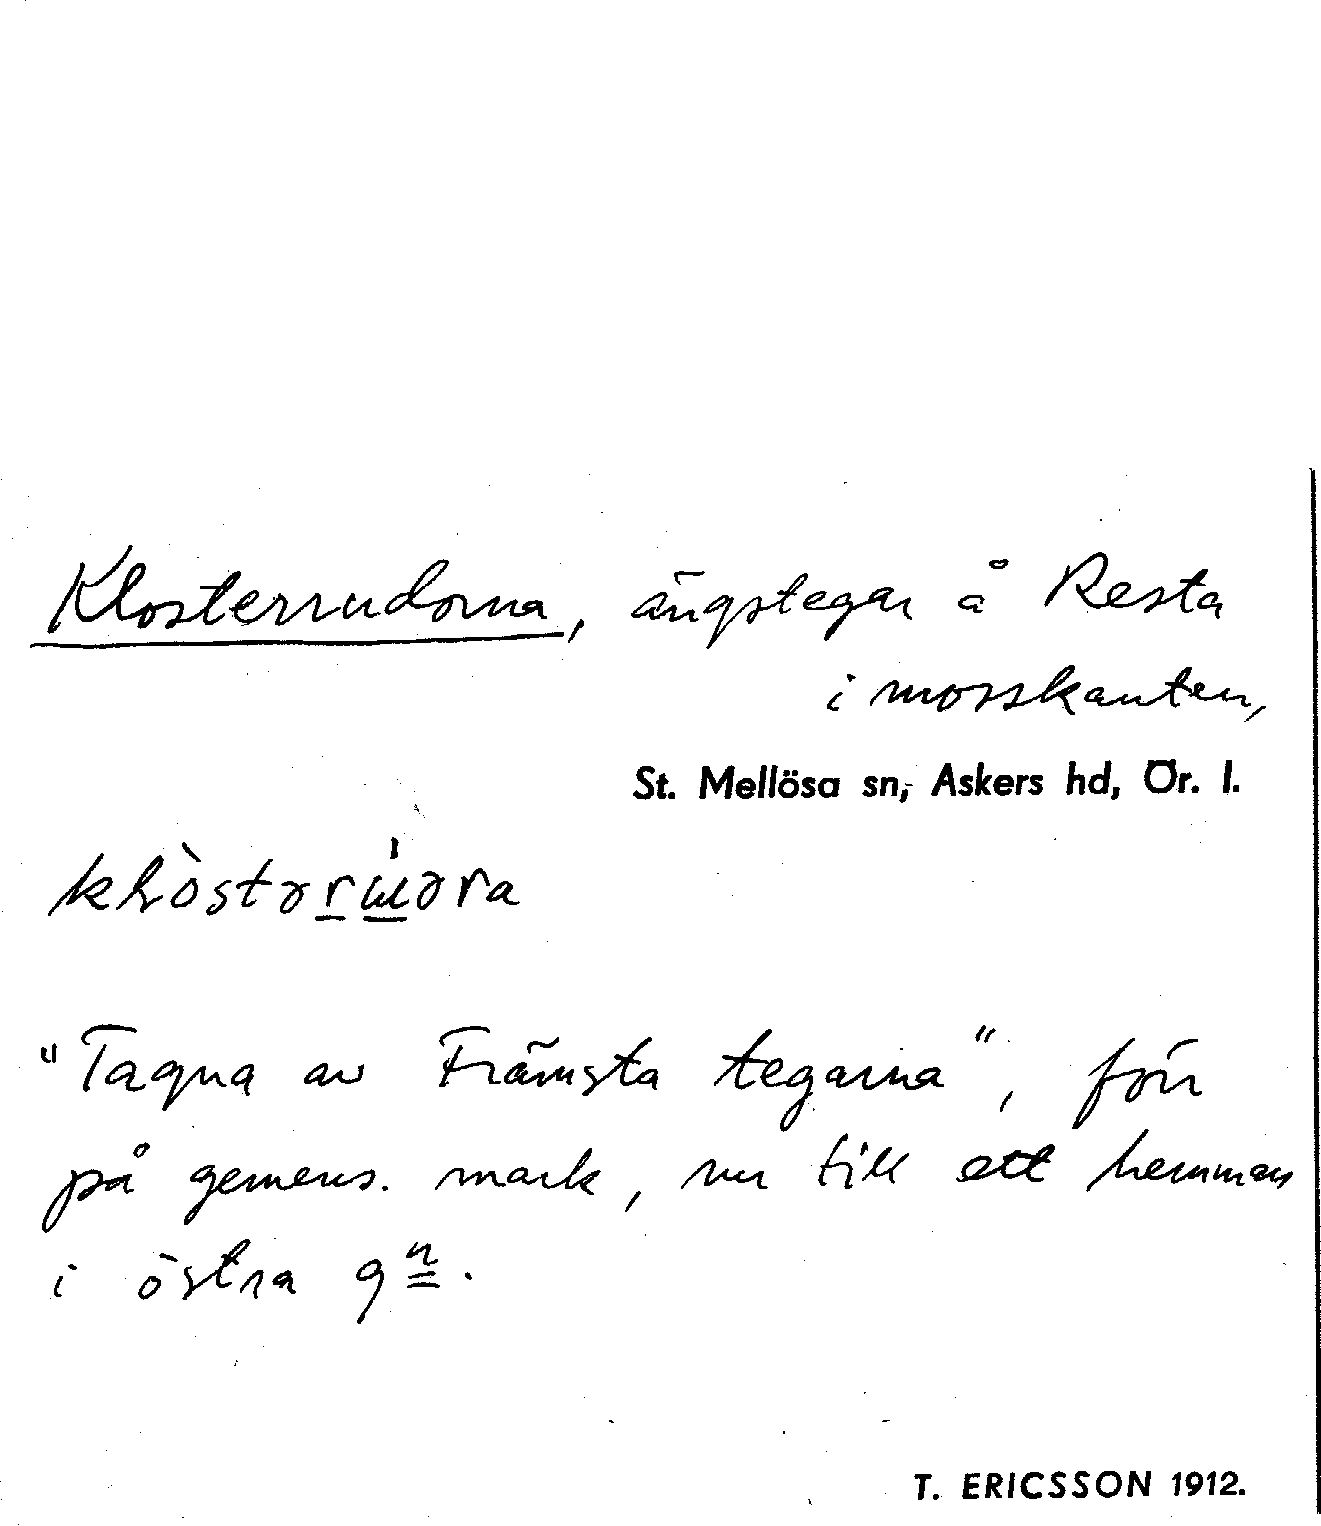 Klosterrudorna, ängstegar å Resta
i mosskanten,
St. Mellösa sn, Askers hd, Ör. l.
"Tagna av Främsta tegarna", förr
på gemens. mark, nu till ett hemman
i östra gn.
T. ERICSSON 1912.